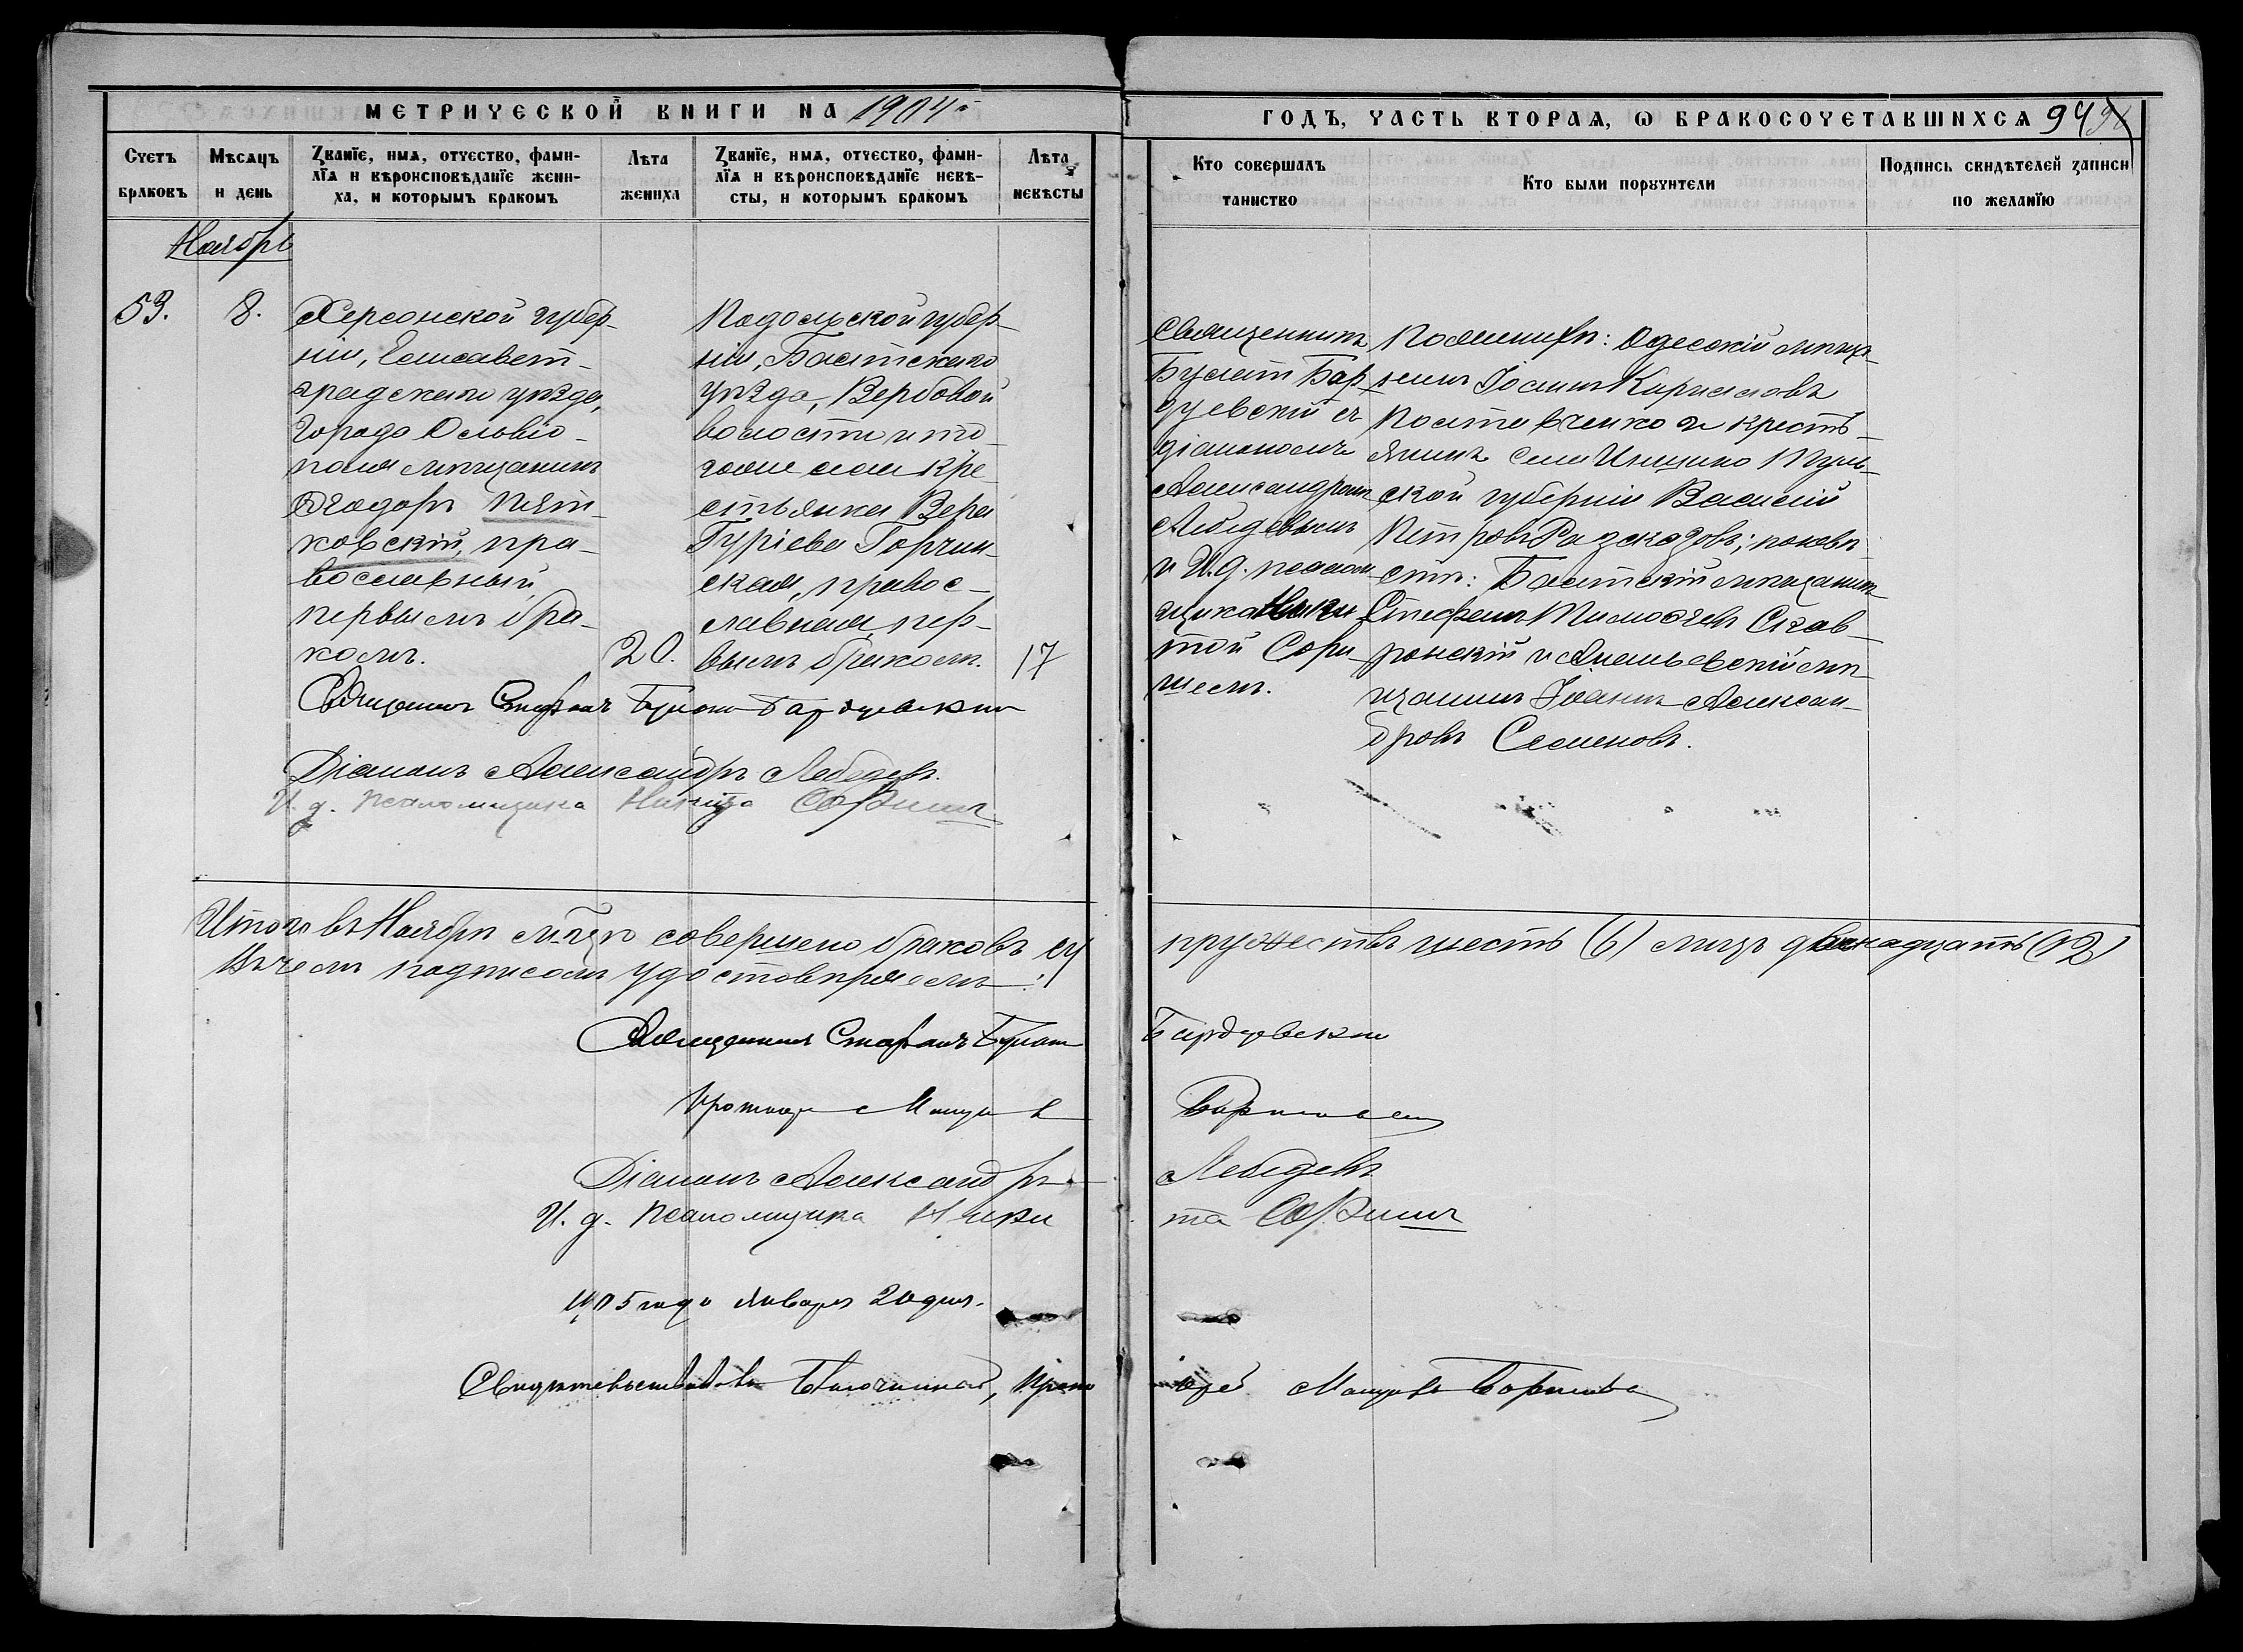 МЕТРИЧЕСКОЙ КНИГИ НА 1904й
ГОДЪ, ЧАСТЬ ВТОРАЯ, Ѡ БРАКОСОЧЕТАВШИХСЯ 94
Счетъ
браковъ
Мѣсяцъ
и день
Званїе, имя, отчество, фами-
лїя и вѣроисповѣданїе жени-
ха, и которымъ бракомъ
Лѣта
жениха
Званїе, имя, отчество, фами-
лїя и вѣроисповѣданїе невѣ-
сты, и которымъ бракомъ
Лѣта
невѣсты
Кто совершалъ
таинство
Кто были поручители
Подпись свидѣтелей записи
по желанїю
Ноябрь
53.
8.
Херсонской губер-
ніи, Елисавет-
градскаго уѣзда,
города Ольвіо-
поля мѣщанинъ
Ѳеодоръ Пят-
ковскій, пра-
вославный,
первымъ бра-
комъ.
20.
Подольской губер-
ніи, Балтскаго
уѣзда, Вербовой
волости и то-
гоже села кре-
стьянка Вера
Гуріева Горчин-
ская, правос-
лавная, пер-
вымъ бракомъ.
17
Священникъ
Булат Бар-
дуевскій съ
діакономъ
Александромъ
Лебедевымъ
и И.д. псалом-
щика Ники-
той Сори-
шемъ.
По женихѣ: Одесскій мѣща-
нинъ Іоаннъ Кириловъ
и кресть-
янинъ села Туль-
ской губерніи Василій
Петровъ Разсказовъ; по невѣ-
стѣ: Балтскій мѣщанинъ
Стефанъ Тимоѳеевъ Скав-
ронскій и Ананьевскій мѣ-
щанинъ Іоаннъ Алексан-
дровъ Семеновъ.
Священникъ Стефанъ Булат-Бардуевскій
Діаконъ Александръ Лебедевъ.
И. д. псаломщика Никита
Итого въ Ноябрѣ м-цѣ совершено браковъ су
пружествъ шесть (6) лицъ двѣнадцать (12)
въ чемъ подписомъ удостовѣряемъ:
Священникъ Стефанъ Булат
Бардуевскій
Діаконъ Александръ
Лебедевъ
И. д. псаломщика Ники
та
1905 года Января 20 дня.
Свидѣтельствовалъ Благочинный, Прото
іерей